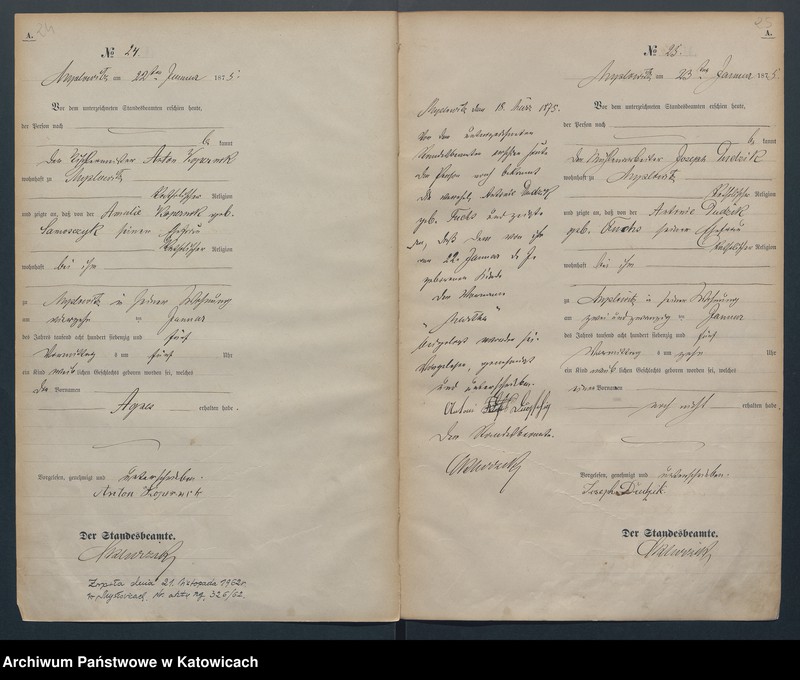 A.
№ 24.
Myslowitz am 22ten Januar 1875.
Vor dem unterzeichneten Standesbeamten erschien heute,
der Person nach
be kannt
der Anton Koperwok
wohnhaft zu Myslowitz
katholischer Religion
und zeigte an, daß von der Amalie geb.
seiner Ehefrau
katholischer Religion
wohnhaft bei ihm
zu Myslowitz in seiner Wohnung
am vierzehn Januar
des Jahres tausend acht hundert siebenzig und fünf
Vormittag s um fünf Uhr
ein Kind weib lichen Geschlechts geboren worden sei, welches
den Vornamen
Agnes erhalten habe.
Vorgelesen, genehmigt und unterschrieben.
Anton
Der Standesbeamte.
dnia 21 listopada 1962r
w Mysłowicach. Nr. aktu zg. 326/62.
25
A.
№ 25.
Myslowitz am 23ten Januar 1875
Vor dem unterzeichneten Standesbeamten erschien heute,
der Person nach
be kannt
der Joseph Dudzik
wohnhaft zu Myslowitz
katholischer Religion
und zeigte an, daß von der Antonie Dudzik
geb. Fuchs seiner Ehefrau
katholischer Religion
wohnhaft bei ihm
zu Myslowitz in seiner Wohnung
am zwei und zwanzig Januar
des Jahres tausend acht hundert siebenzig und fünf
Vormittag s um zehn Uhr
ein Kind weib lichen Geschlechts geboren worden sei, welches
Vornamen
noch nicht erhalten habe
Vorgelesen, genehmigt und unterschrieben.
Joseph Dudzik.
Der Standesbeamte.
Myslowitz den 18. März 1875.
Vor dem unterzeichneten
Standesbeamten erschien heute
der Person nach bekannt
die Antonie Dudzik
geb. Fuchs und zeigte
an, daß dem von ihr
am 22. Januar d. J.
geborenen Kinde
der Vorname
beigelegt worden sei.
Vorgelesen, genehmigt
und unterschrieben.
Der Standesbeamte.
Archiwum Państwowe w Katowicach